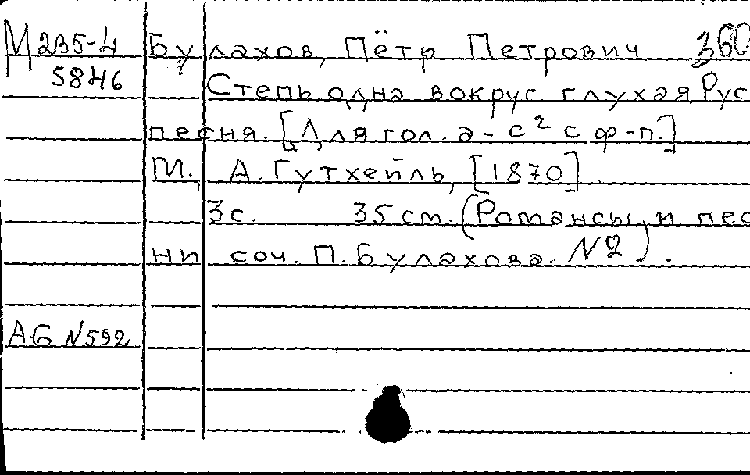 М 235-4 Булахов, Пётр Петрович 360
5846 Степь одна вокруг глухая. Рус
песня. [Для гол. a-c² с ф-п.]
М., А. Гутхейль, [1870].
3с. 35 см. (Романсы и пес
ни соч. П. Булахова. №2).
АБ №592